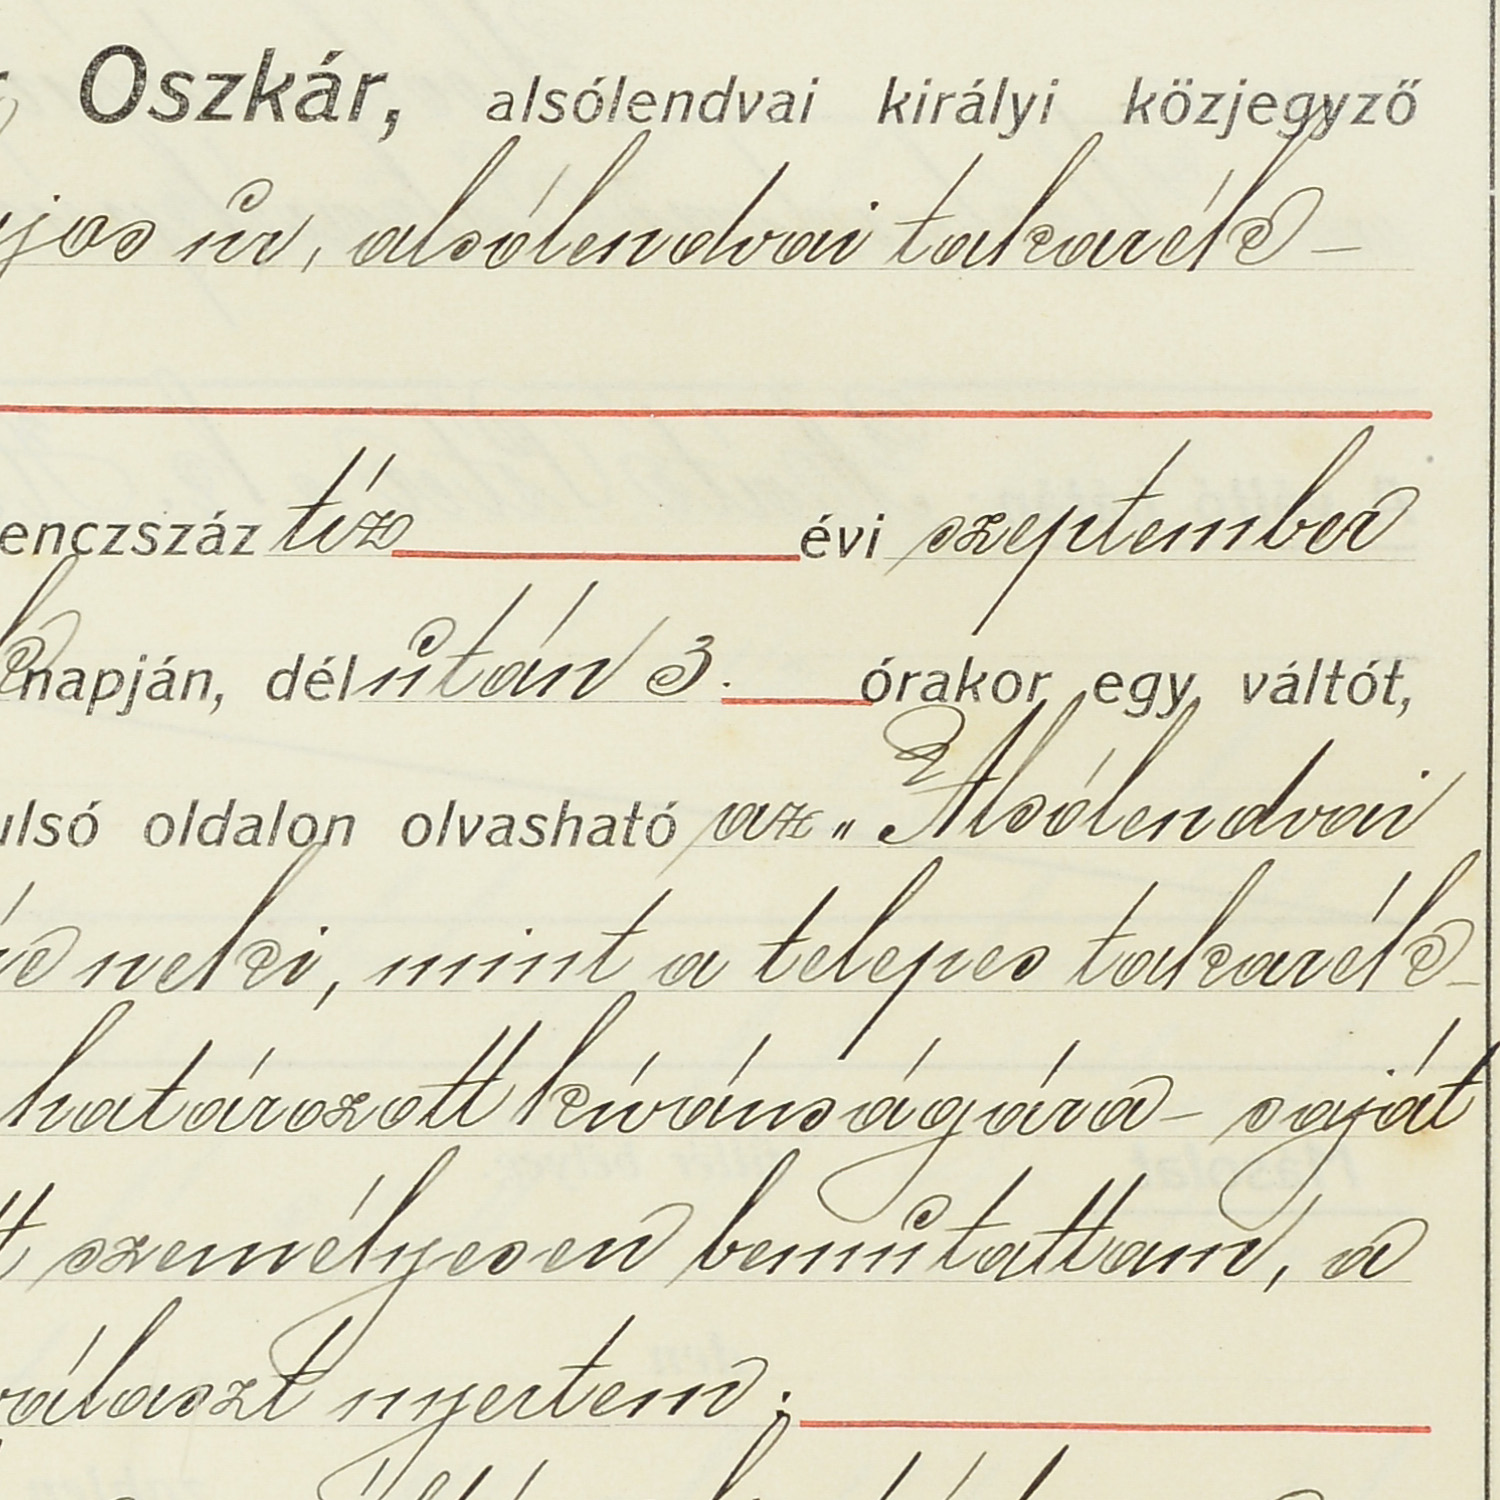 Oszkár, alsólendvai királyi közjegyző
úr, alsólendvai takarék-
enczszáz tíz évi szeptember
napján, délután 3. órakor egy váltót,
ulsó oldalon olvasható az „Alsólendvai
neki, mint a telepes takarék-
határozott kívánságára - saját
személyesen bemutattam, a
választ nyertem;